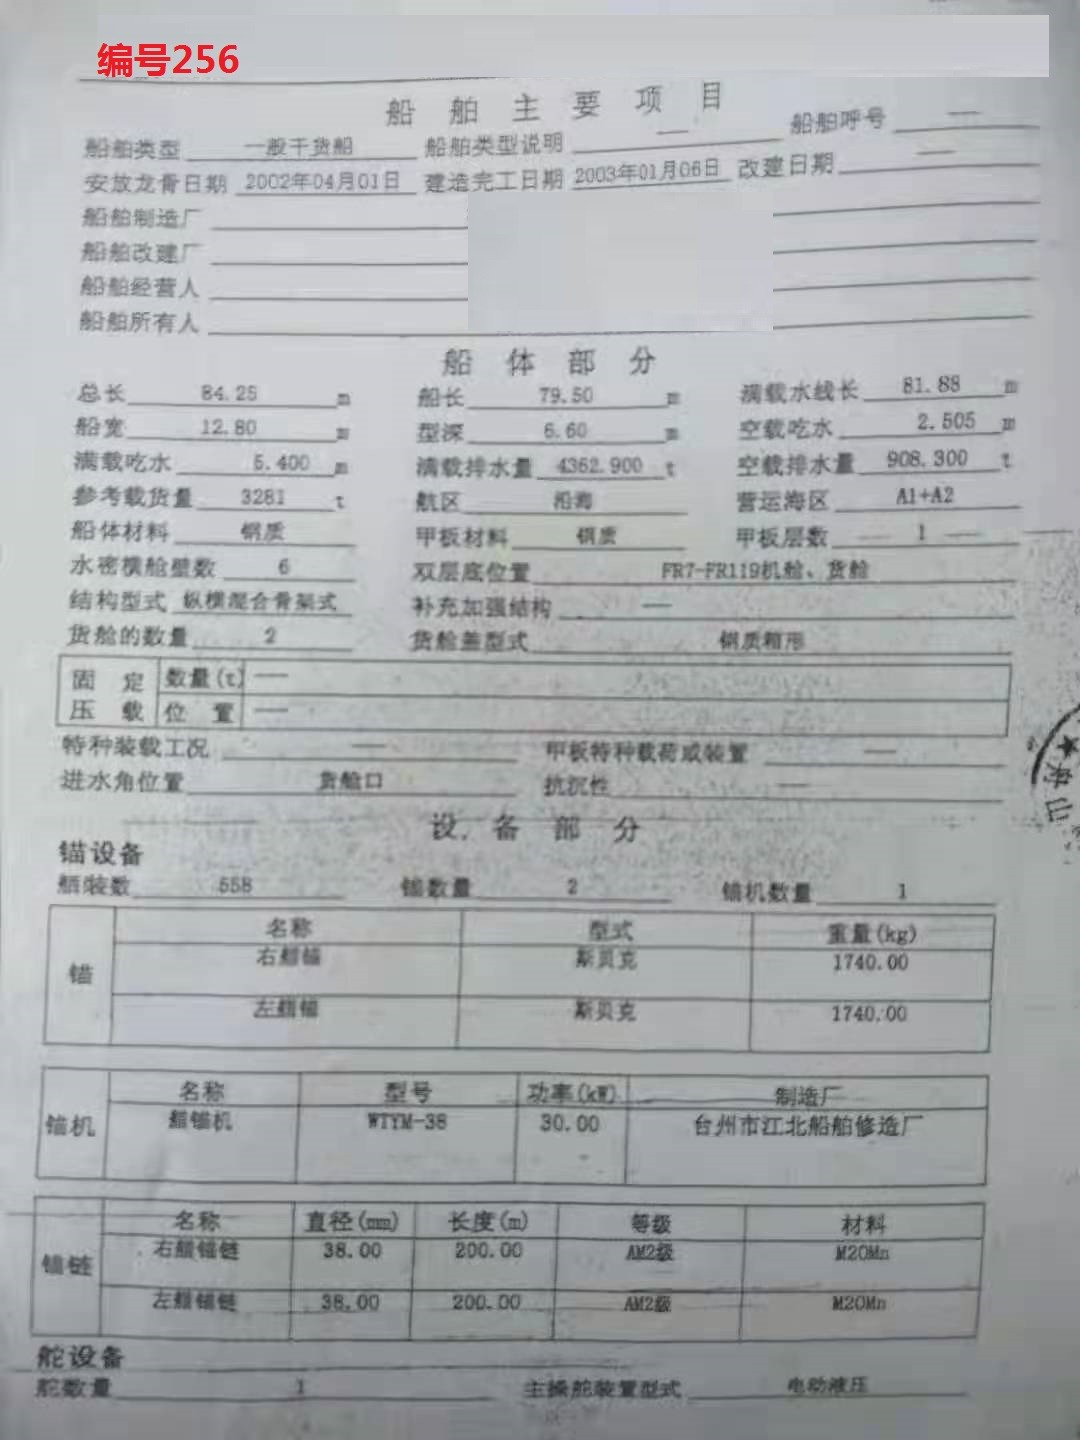 编号256
船舶主要项目
船舶类型 一般干货船 船舶类型说明 — 船舶呼号 —
安放龙骨日期 2002年04月01日 建造完工日期 2003年01月06日 改建日期 —
船舶制造厂
船舶改建厂
船舶经营人
船舶所有人
船体部分
总长 84.25 m 船长 79.50 m 满载水线长 81.88 m
船宽 12.80 m 型深 6.60 m 空载吃水 2.505 m
满载吃水 5.400 m 满载排水量 4362.900 t 空载排水量 908.300 t
参考载货量 3281 t 航区 沿海 营运海区 A1+A2
船体材料 钢质 甲板材料 钢质 甲板层数 — 1 —
水密横舱壁数 6 双层底位置 FR7-FR119机舱、货舱
结构型式 纵横混合骨架式 补充加强结构 —
货舱的数量 2 货舱盖型式 钢质箱形
固定 数量(t) —
压载 位置 —
特种装载工况 — 甲板特种载荷或装置 —
进水角位置 货舱口 抗沉性 —
设备部分
锚设备
舾装数 558 锚数量 2 锚机数量 1
名称 型式 重量(kg)
锚 右艏锚 斯贝克 1740.00
左艏锚 斯贝克 1740.00
名称 型号 功率(kW) 制造厂
锚机 艏锚机 WTYM-38 30.00 台州市江北船舶修造厂
名称 直径(mm) 长度(m) 等级 材料
锚链 右艏锚链 38.00 200.00 AM2级 M20Mn
左艏锚链 38.00 200.00 AM2级 M20Mn
舵设备
舵数量 1 主操舵装置型式 电动液压